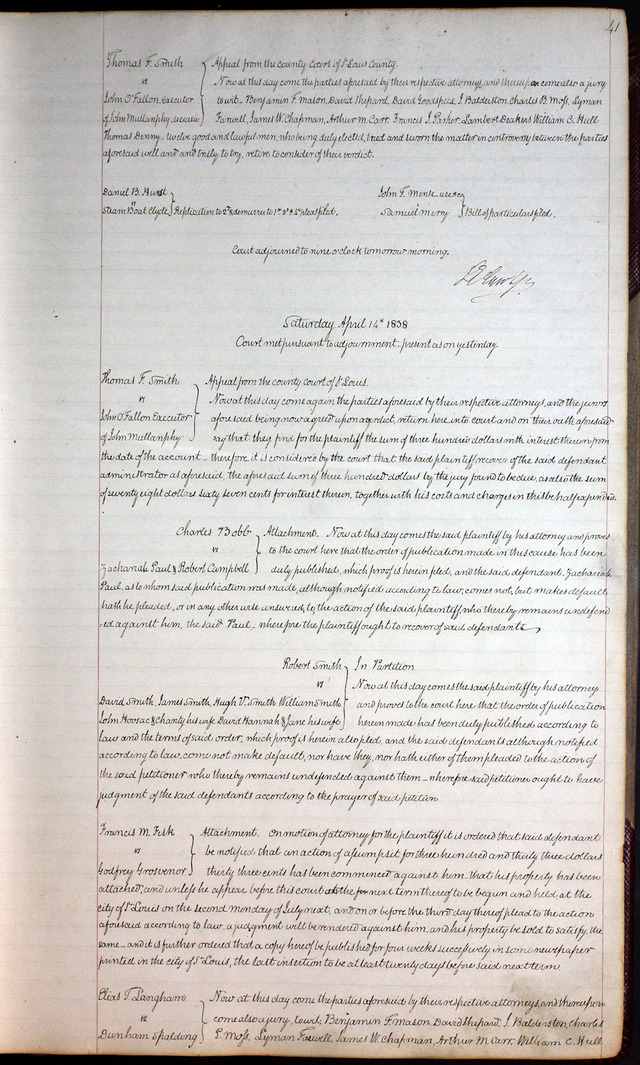 41
Thomas F. Smith
vs
John O'Fallon, Executor
of John Mullanphy decease
Appeal from the county Court of St Louis County.
Now at this day come the parties aforesaid by their respective attorneys, and thereupon come also a jury
to wit - Benjamin F. Mason, David Shepard, David Goodspeed, J. Balderston, Charles B. Moss, Lyman
Farwell, James W. Chapman, Arthur M. Carr, Francis J. Parker, Lambert Deakers William C. Hull
Thomas Denny - twelve good and lawful men, who being duly elected, tried and sworn the matter in controversy between the parties
aforesaid well and and truly to try, retire to consider of their verdict.
Daniel B. Hurst
vs
Steam Boat Clyde
Replication to 2nd & demurrer to 1st 3d & 4th pleas filed.
John F. Mense use &c
vs
Samuel Merry
Bill of particulars filed.
Court adjourned to nine o'clock tomorrow morning.
Saturday, April 14th 1838
Court met pursuant to adjournment - present as on yesterday.
Thomas F. Smith
vs
John O'Fallon Executor
of John Mullanphy
Appeal from the county Court of St Louis.
Now at this day come again the parties aforesaid by their respective attorneys, and the jurors
aforesaid being now agreed upon a verdict, return here into court and on their oath aforesaid
say that they find for the plaintiff the sum of three hundred dollars with interest thereon from
the date of the account - therefore it is considered by the court that the said plaintiff recover of the said defendant
administrator as aforesaid, the aforesaid sum of three hundred dollars by the jury found to be due, as also the sum
of seventy eight dollars sixty seven cents for interest thereon, together with his costs and charges in this behalf expended.
Charles Bobb
vs
Zachariah Paul & Robert Campbell
Attachment. Now at this day comes the said plaintiff by his attorney and proves
to the court here that the order of publication made in this cause has been
duly published, which proof is herein filed, and the said defendant, Zachariah
Paul, as to whom said publication was made, although notified according to law, comes not, but makes default
hath he pleaded, or in any other wise answered, to the action of the said plaintiff who thereby remains undefend
-ed against him, the said Paul - wherefore the plaintiff ought to recover of said defendants
Robert Smith
vs
David Smith, James Smith, Hugh V. Smith William Smith
John Hoosac & Charity his wife David Hannah & Jane his wife
In Partition
Now at this day comes the said plaintiff by his attorney
and proves to the court here that the order of publication
herein made - has been duly published according to
law and the terms of said order, which proof is herein also filed, and the said defendants although notified
according to law, come not make default, nor have they, nor hath either of them pleaded to the action of
the said petitioner who thereby remains undefended against them - wherefore said petitioner ought to have
judgment of the said defendants according to the prayer of said petition
Francis M. Fisk
vs
Godfrey Grosvenor
Attachment. On motion of attorney for the plaintiff it is ordered that said defendant
be notified that an action of assumpsit for three hundred and thirty three dollars
thirty three cents has been commenced against him - that his property has been
attached, and unless he appear before this court at the next term thereof to be begun and held at the
city of St Louis on the second monday of July next, and on or before the third day thereof plead to the action
aforesaid according to law, a judgment will be rendered against him, and his property be sold to satisfy the
same - and it is further ordered that a copy hereof be published for four weeks successively in some newspaper
printed in the city of St Louis, the last insertion to be at least twenty days before said next term.
Elias T. Langham
vs
Dunham Spalding
Now at this day come the parties aforesaid by their respective attorneys, and thereupon
come also a jury, to wit, Benjamin F. Mason, David Shepard, J. Balderston, Charles
Moss, Lyman Farwell, James W. Chapman, Arthur M. Carr, William C. Hull